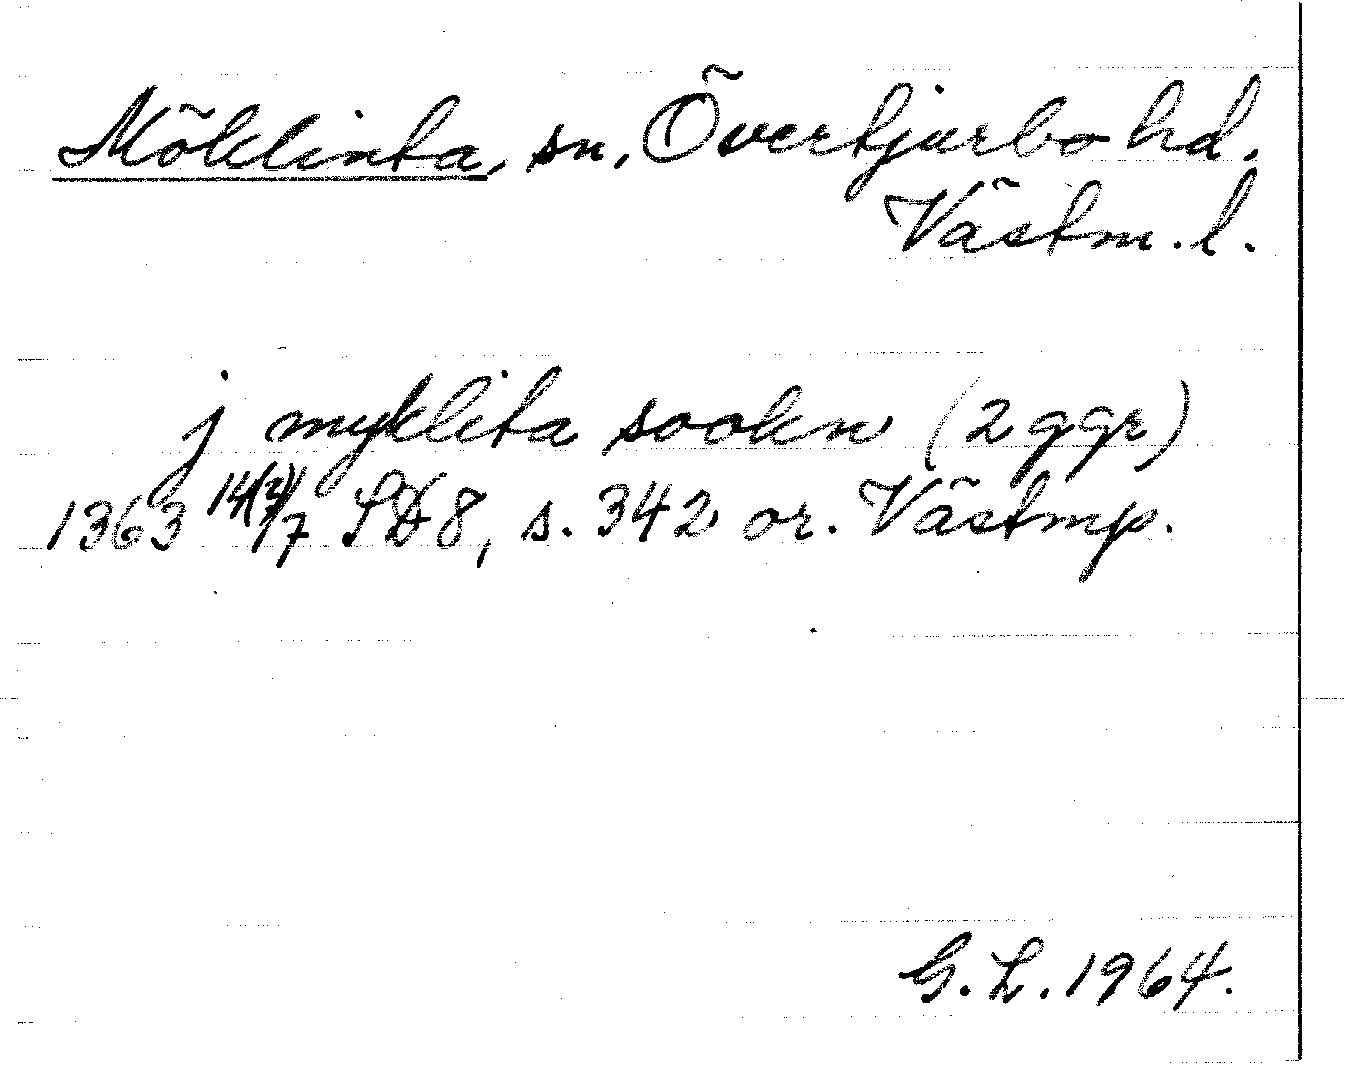 Möklinta, sn, Övertjurbo hd.
Västm. l.
j myklita sookn (2 ggr)
1363 14(?)/7 SD 8, s. 342 or. Västmp.
G. L. 1964.